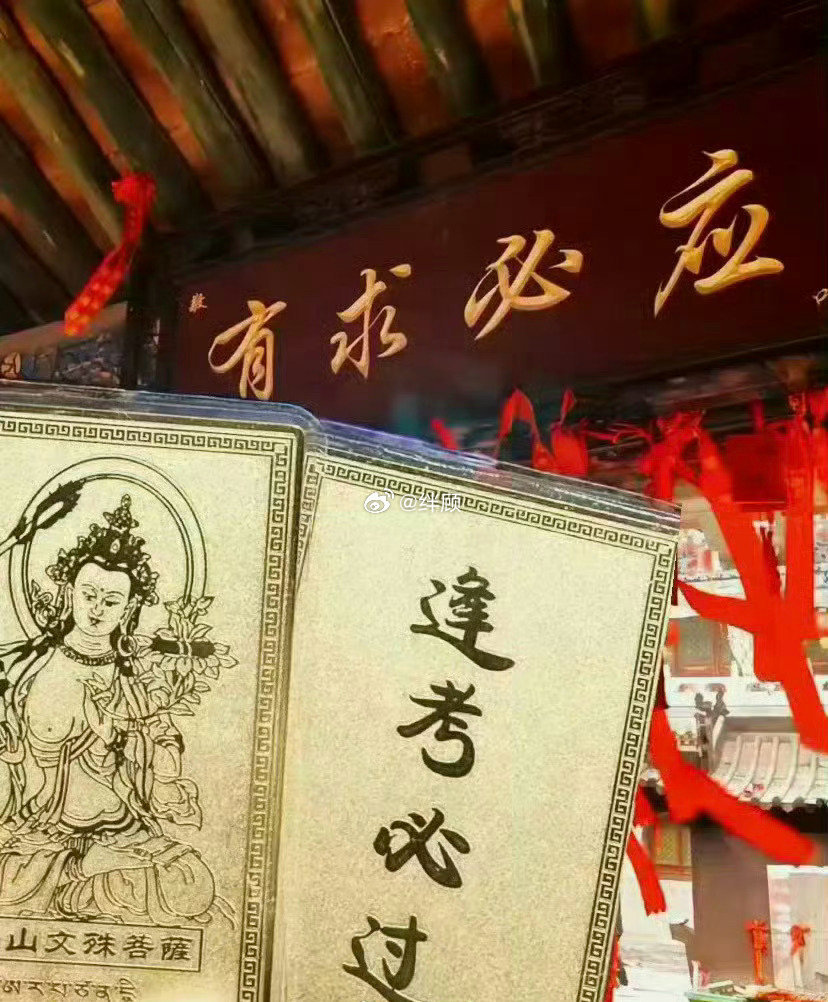 有求必应
@绊顾
逢考必过
山文殊菩萨
ༀཨ་ར་པ་ཙ་ན་དྷཱི